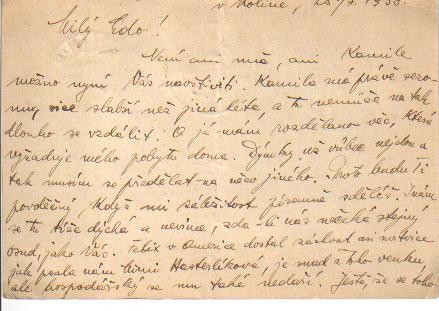 v Kolíně, 28/7. 1938.
Milý Edo!
Není ani mně, ani Kamile
možno nyní Vás navštíviti. Kamila má právě sezo-
nu, sice slabší než jiná léta, a tu nemůže na tak
dlouho se vzdálit. O já mám rozdělanou věc, která
vyžaduje mého pobytu doma. Dýmky už vůbec nejdou a
tak musím se předělat na něco jiného. Proto budu Ti
povděčný, když mi záležitost písemně sdělíš. I nám
se tu tíže dýchá a nevíme, zda-li nás nečeká stejný
osud, jako Vás. Felix v Americe dostal záchvat
jak psala nám Mimi Hasterlíková, je snad z toho venku,
ale hospodářsky se mu také nedaří. Ještě, že se toho